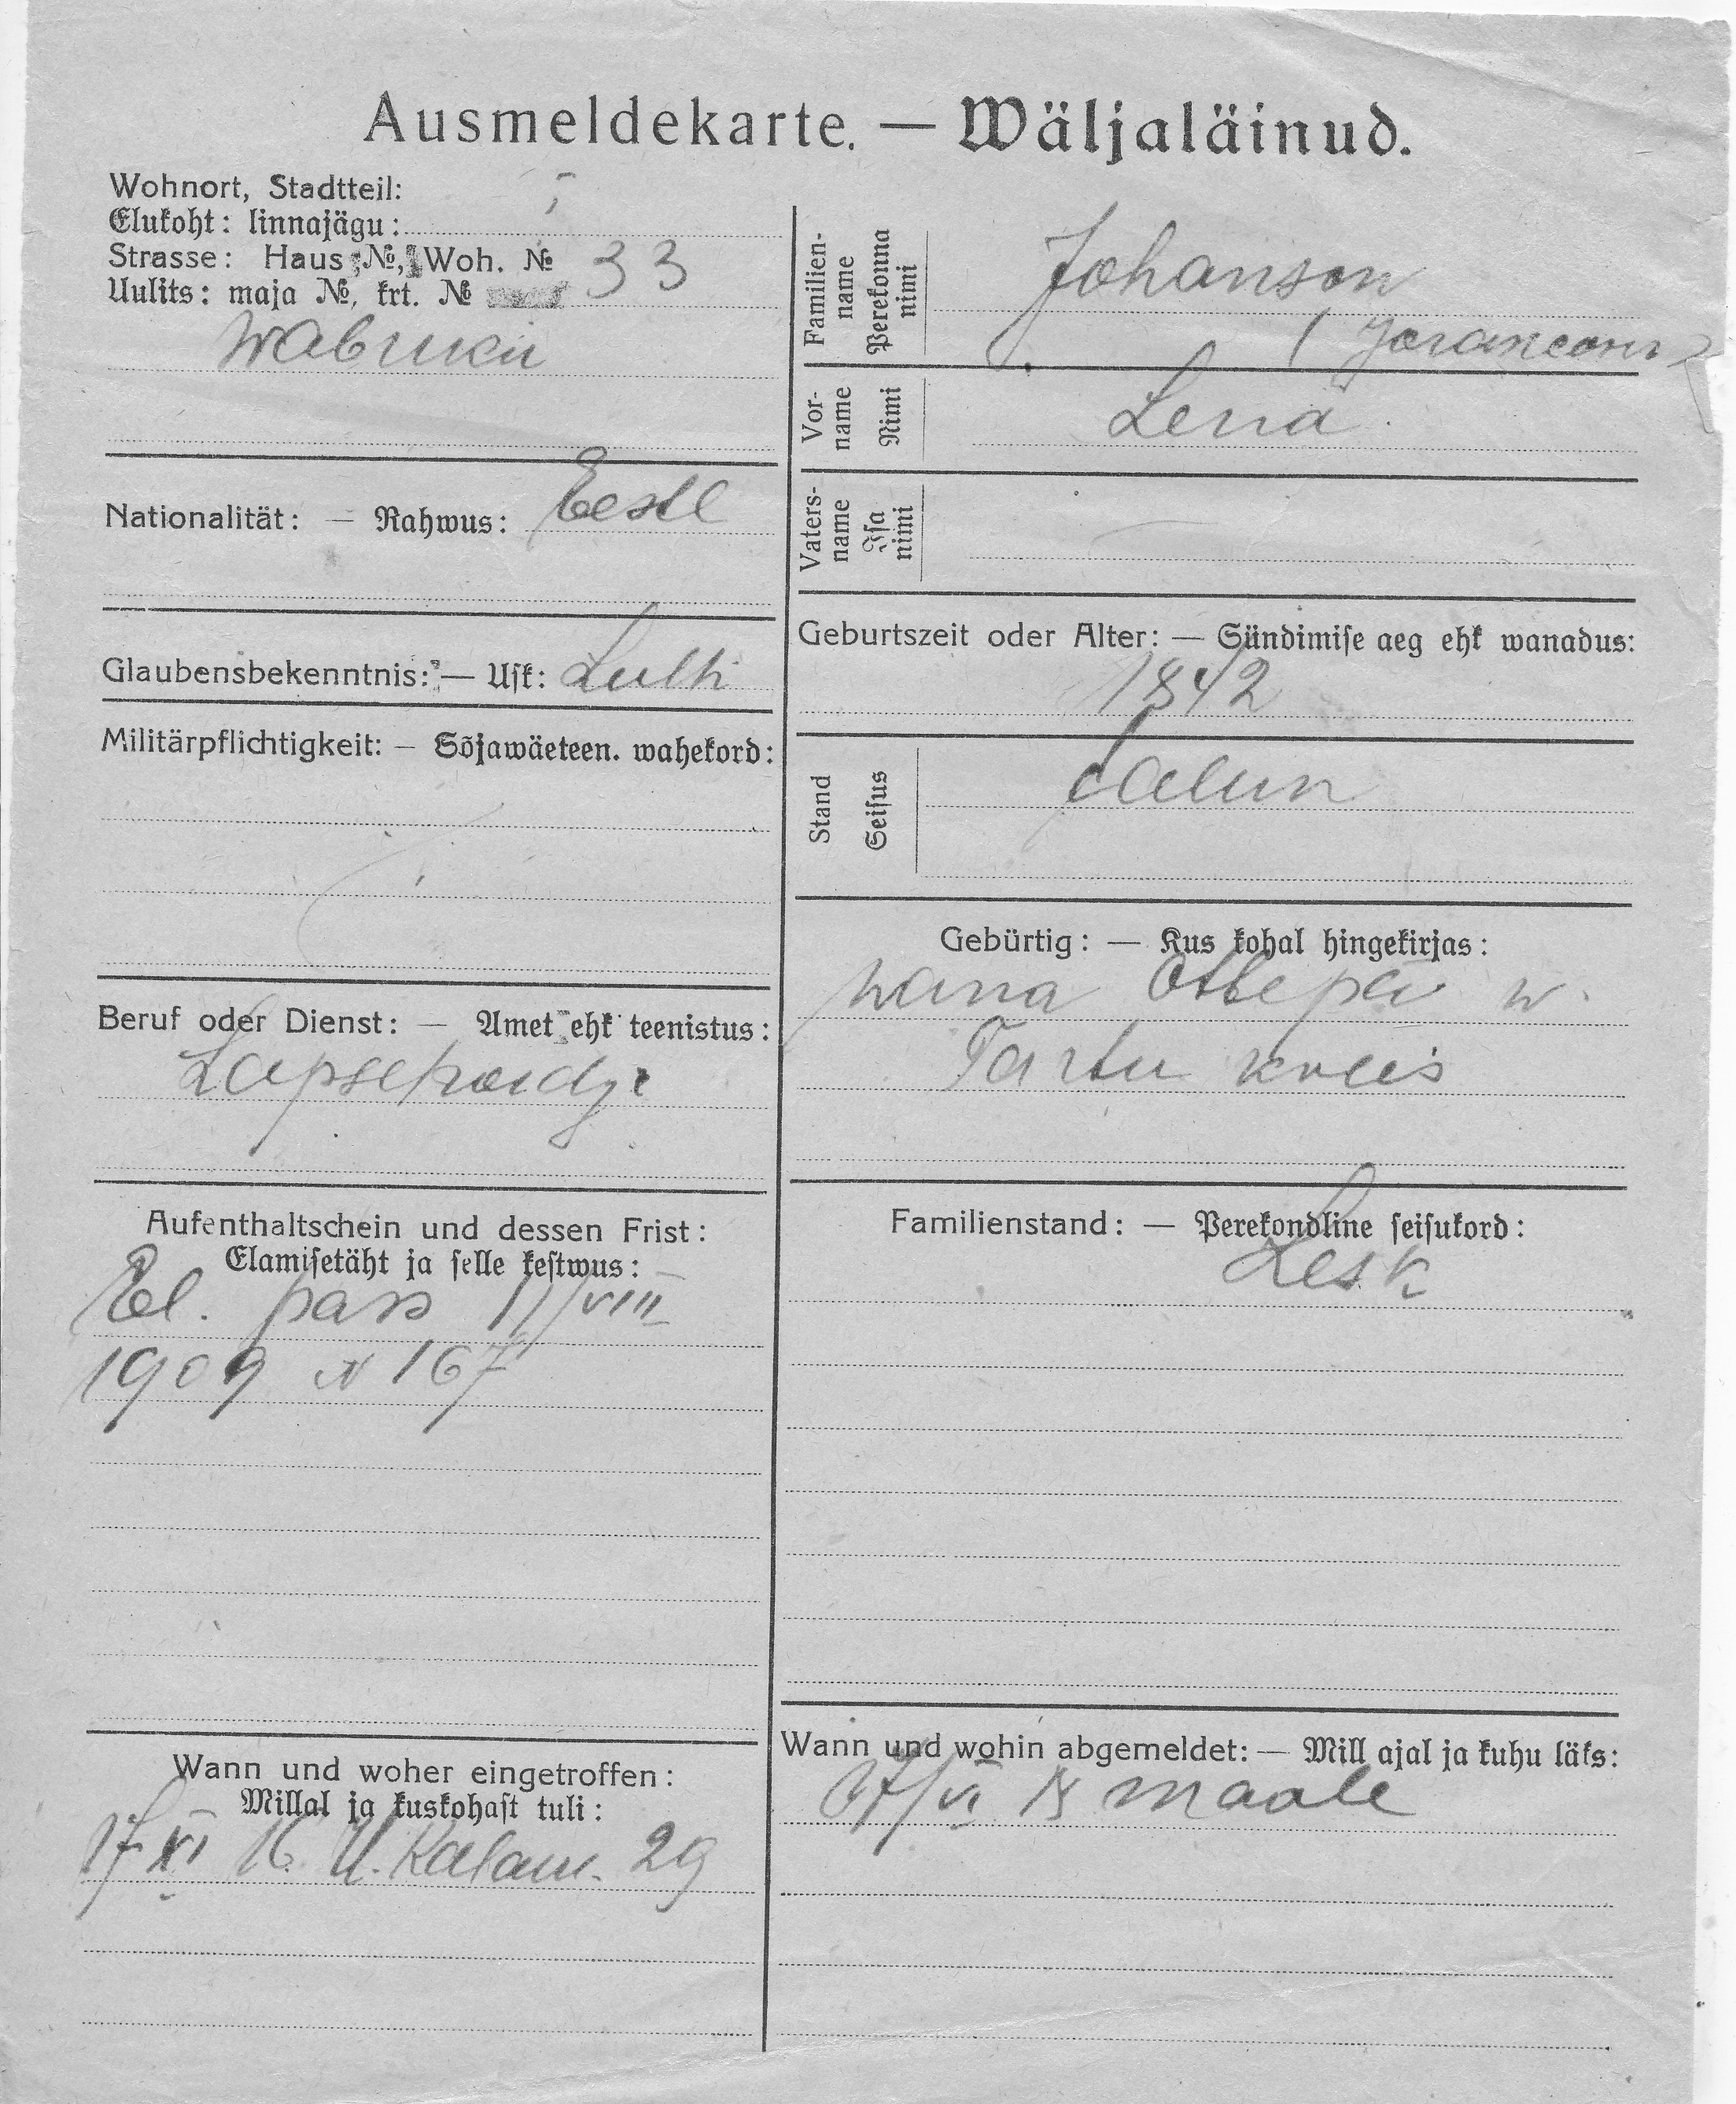 Ausmeldekarte. — Wäljaläinud.
Wohnort, Stadtteil:
Elukoht: linnajägu:
Strasse: Haus №, Woh. №
Uulits: maja №, krt. № 33
Wabriku
Nationalität: — Rahwus: Eesti
Glaubensbekenntnis: — Usk: Luth
Militärpflichtigkeit: — Sõjawäeteen. wahekord:
Beruf oder Dienst: — Amet ehk teenistus:
Lapsehoidja
Aufenthaltschein und dessen Frist:
Elamisetäht ja selle kestwus:
El. pass 11/VIII
1909 N 167
Wann und woher eingetroffen:
Millal ja kuskohast tuli:
17 XI 16. U. Kalam. 29
Familien-
name
Perekonna
nimi
Johanson
Vor-
name
Nimi
Lena
Vaters-
name
Isa
nimi
Geburtszeit oder Alter: — Sündimise aeg ehk wanadus:
1842
Stand
Seisus
talun
Gebürtig: — Kus kohal hingekirjas:
Wana Otepää w.
Tartu kreis
Familienstand: — Perekondline seisukord:
Lesk
Wann und wohin abgemeldet: — Mill ajal ja kuhu läks:
17/VI 18 maale